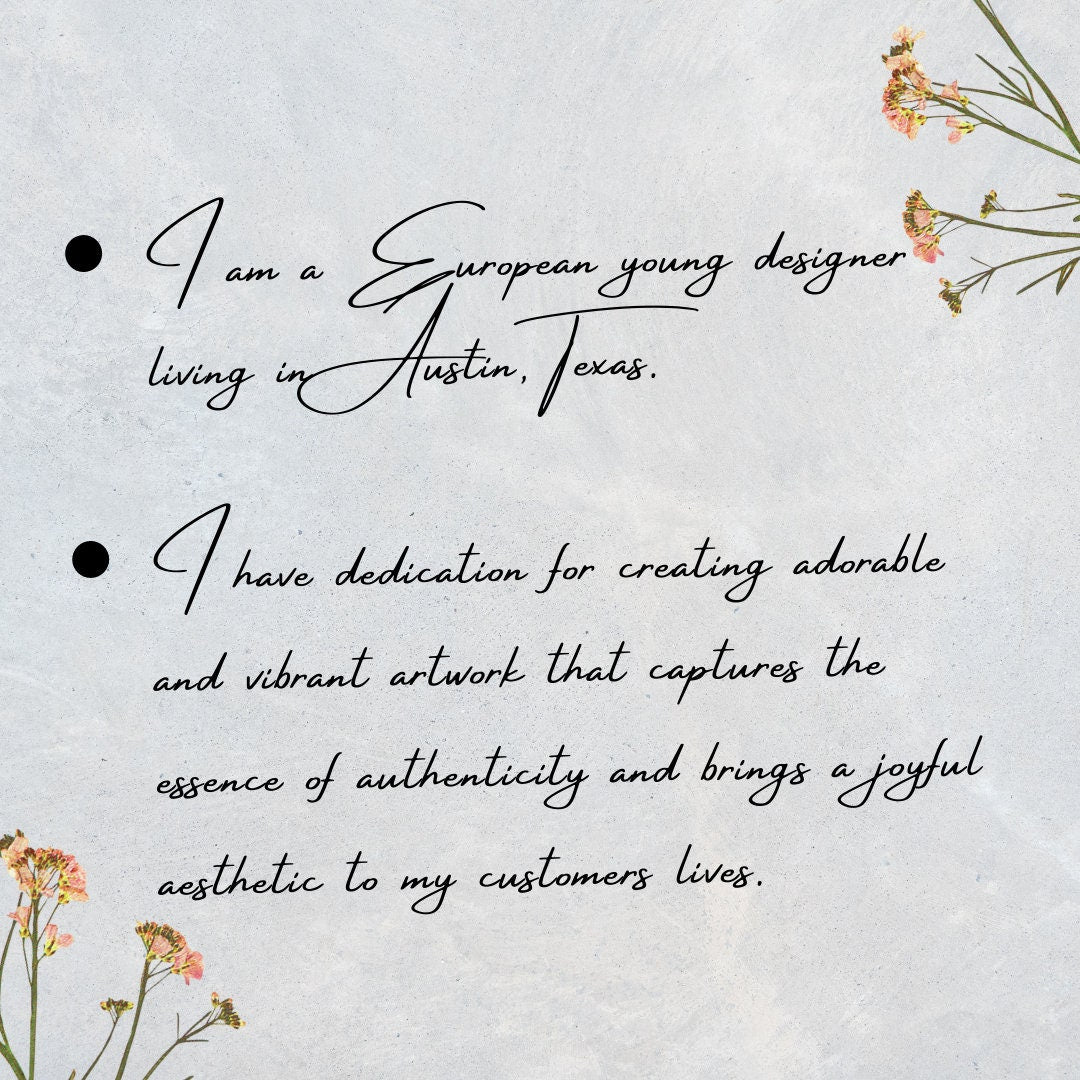 • I am a European young designer
living in Austin, Texas.
• I have dedication for creating adorable
and vibrant artwork that captures the
essence of authenticity and brings a joyful
aesthetic to my customers lives.